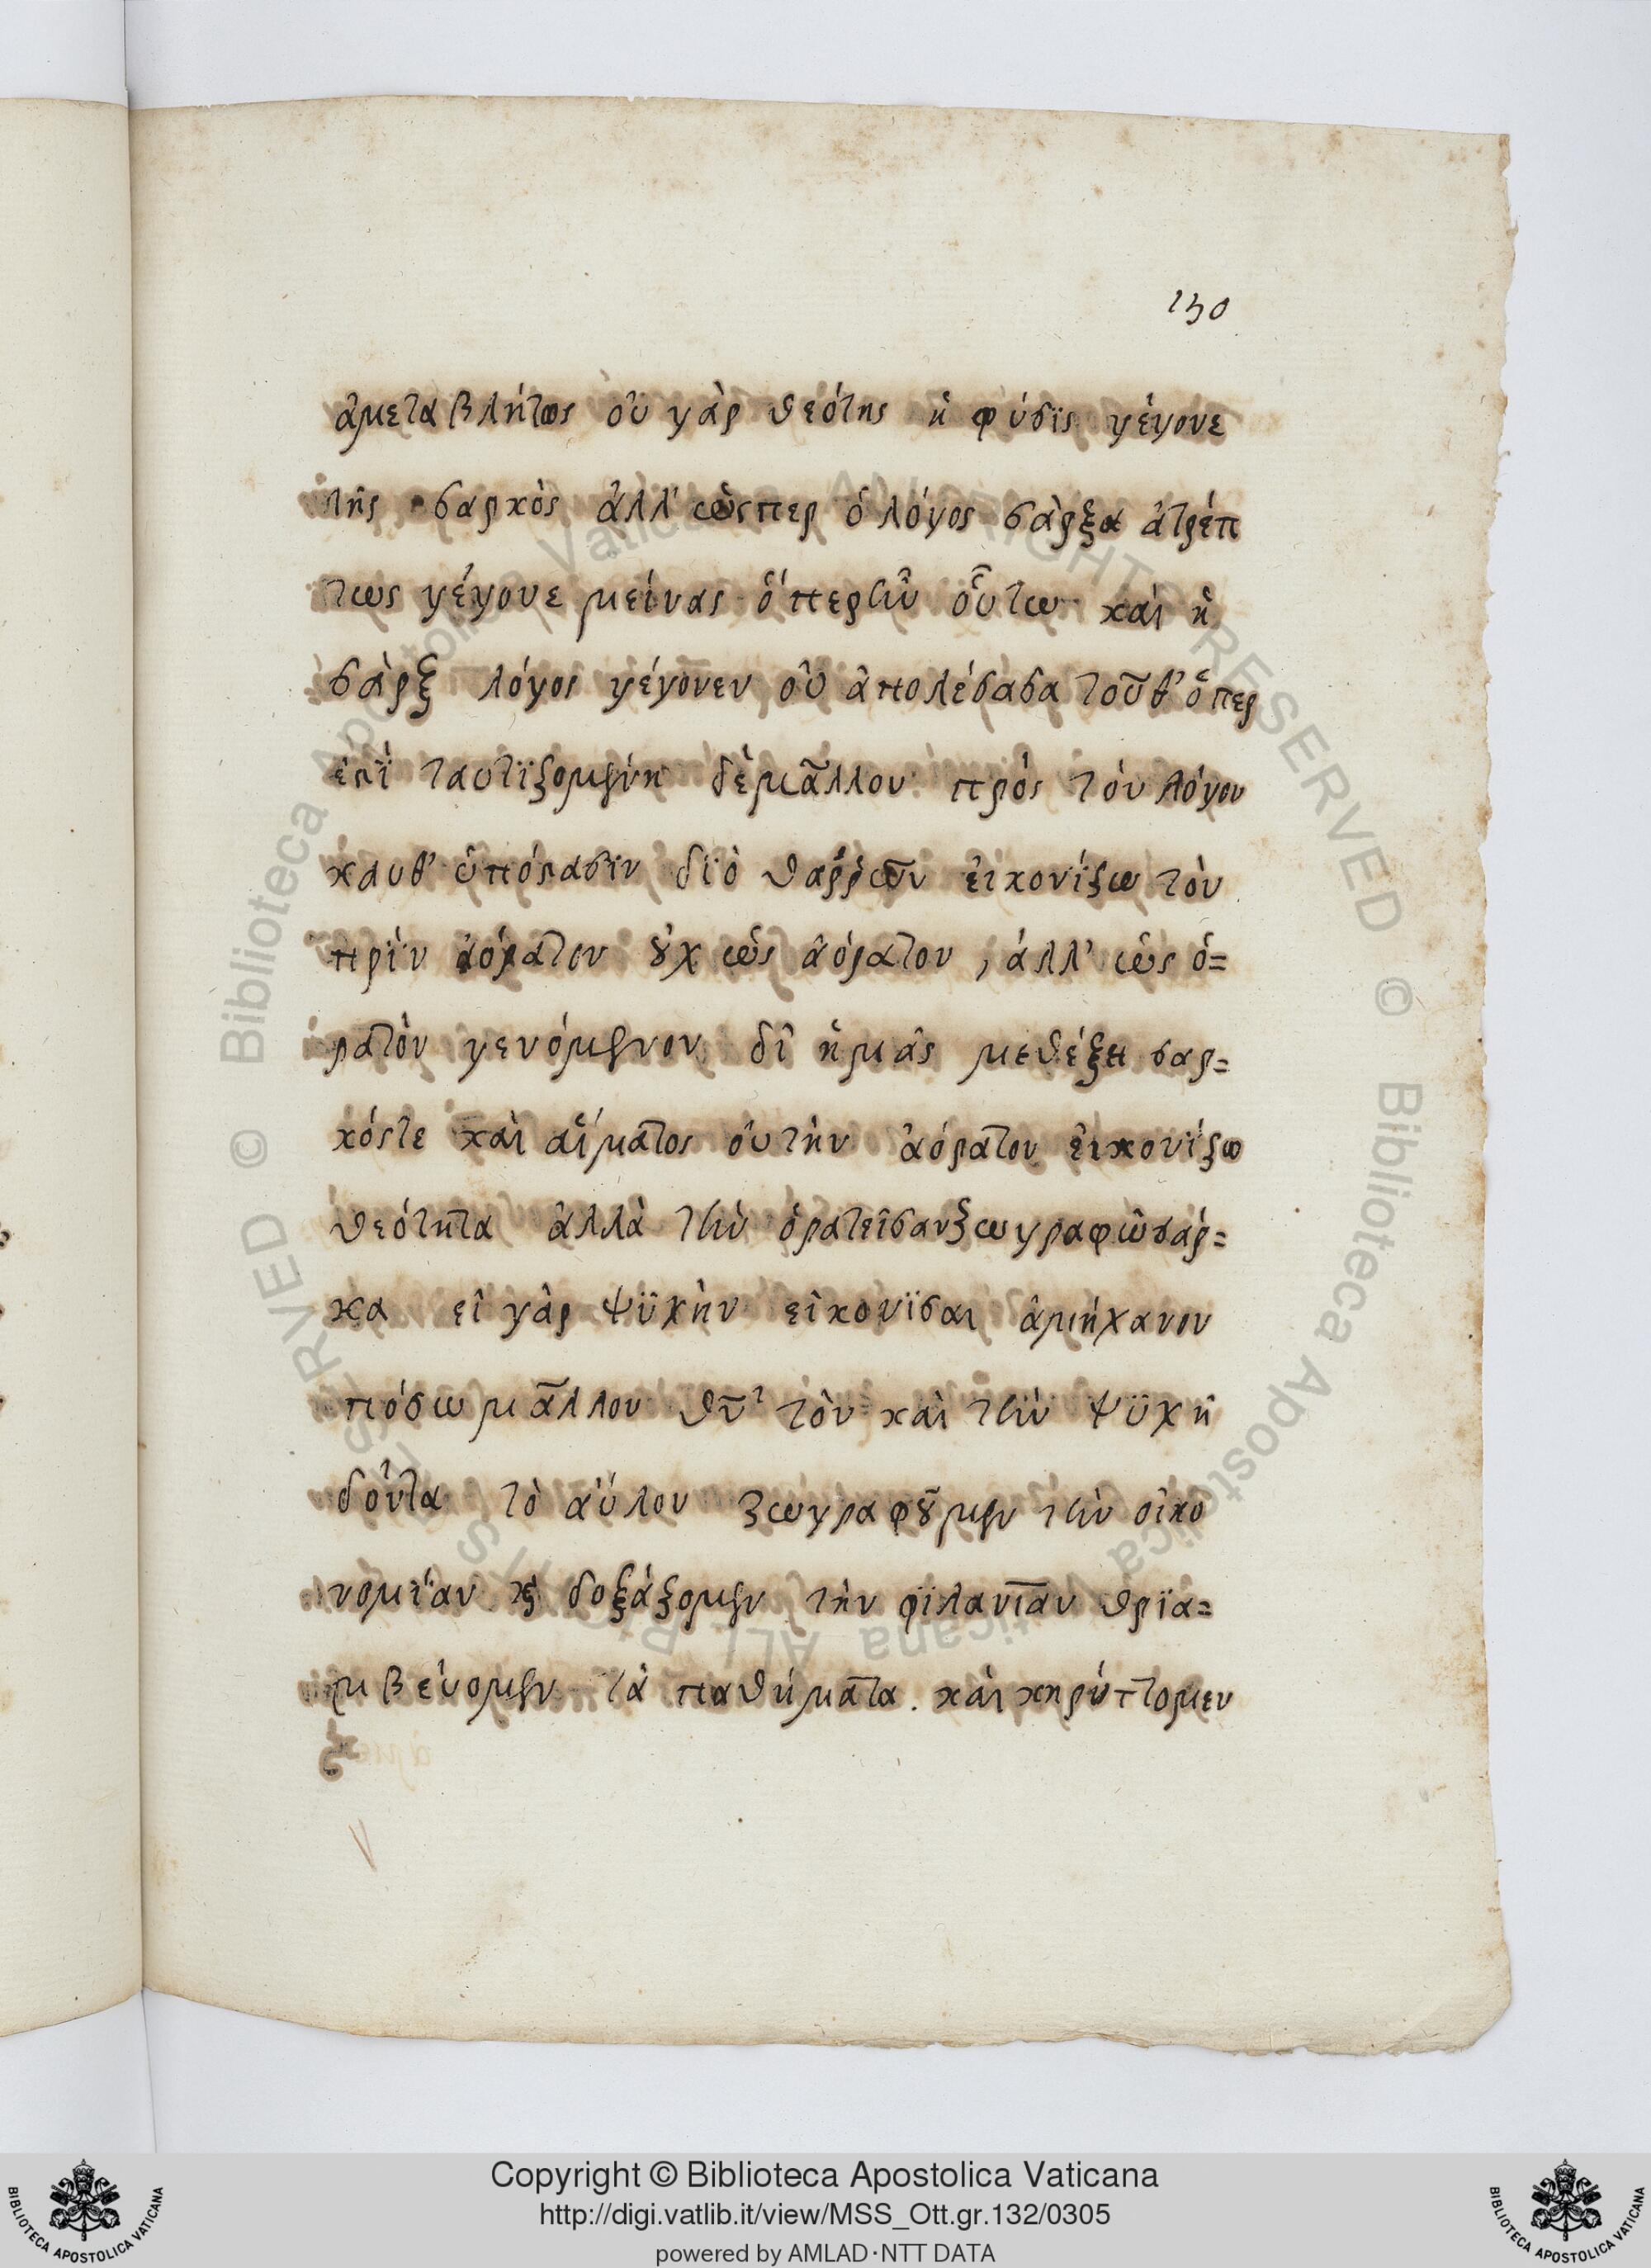 130
ἀμεταβλήτως οὐ γὰρ θεότης ἡ φύσϊς γέγονε
τῆς σαρκὸς ἀλλ' ὥσπερ ὁ λόγος σὰρξα ἀτρέπ
τως γέγονε μείνας ὅπερ ἦν οὕτω καὶ ἡ
σὰρξ λόγος γέγονεν οὐ ἀπολέσασα τοῦθ' ὅπερ
ἐστὶ ταυτϊζομένη δὲ μᾶλλον πρὸς τὸν λόγον
καυθ' ὑπόστασϊν δϊὸ θαῤῥῶν εἰκονίζω τὸν
πρὶν ἀόρατον οὐχ ὡς ἀόρατον, ἀλλ' ὡς ὁ=
ρατὸν γενόμενον δι ἡμᾶς μεθέξει σαρ=
κόςτε καὶ αἵματος οὐ τὴν ἀόρατον εἰκονίζω
θεότητα ἀλλὰ τὴν ὁρατεῖσαν ζωγραφῶ σάρ=
κα εἰ γὰρ ψϋχὴν εἰκονϊσαι ἀμήχανον
πόσω μᾶλλον θν τὸν καὶ τὴν ψϋχῆ
δοῦτα τὸ ἀύλον ζωγραφοῦμεν τὴν οἰκο
νομίαν καὶ δοξάζομεν τὴν φϊλανιαν θρϊα=
μβεύομεν τὰ παθήματα. καὶ κηρύττομεν
Copyright © Biblioteca Apostolica Vaticana
http://digi.vatlib.it/view/MSS_Ott.gr.132/0305
powered by AMLAD·NTT DATA